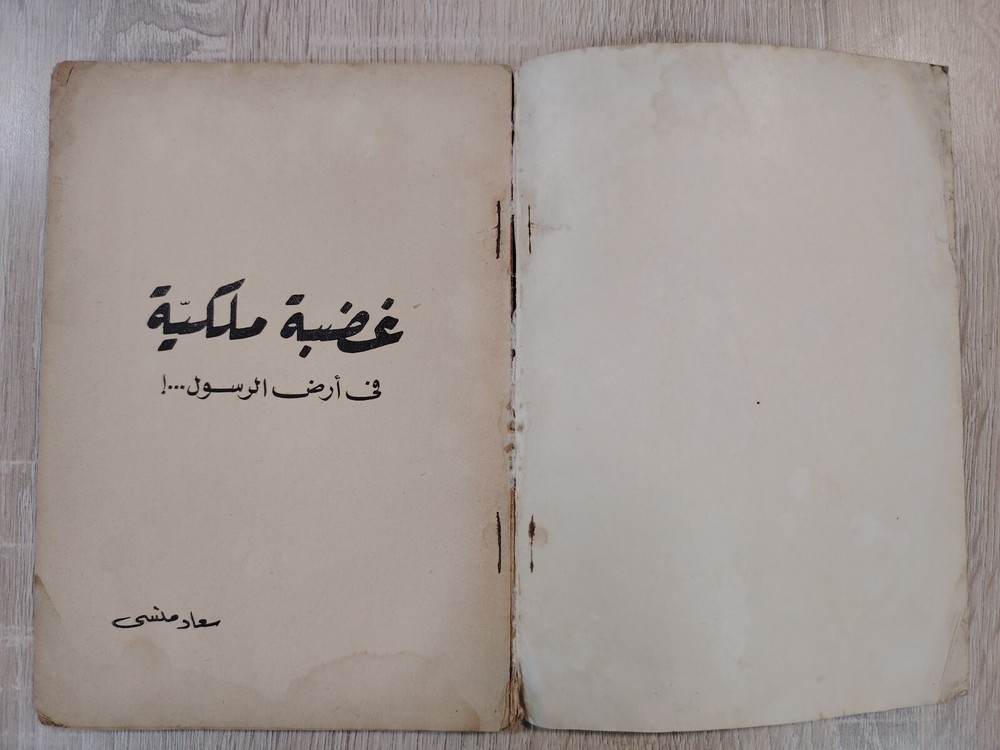 غضبة ملكيّة
فى أرض الرسول...!
سعاد منسى